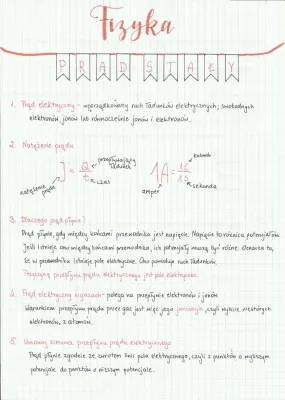 Fizyka
PRĄD STAŁY
1. Prąd elektryczny - uporządkowany ruch ładunków elektrycznych; swobodnych
elektronów, jonów lub równocześnie jonów i elektronów.
2. Natężenie prądu
I = Q/t
natężenie prądu
przepływający ładunek
czas
1A = 1C/1s
kulomb
amper
sekunda
3. Dlaczego prąd płynie?
Prąd płynie, gdy między końcami przewodnika jest napięcie. Napięcie to różnica potencjałów.
Jeśli istnieje ono między końcami przewodnika, ich potencjały muszą być różne. Oznacza to,
że w przewodniku istnieje pole elektryczne. Ono powoduje ruch ładunków.
Przyczyną przepływu prądu elektrycznego jest pole elektryczne.
4. Prąd elektryczny w gazach - polega na przepływie elektronów i jonów.
Warunkiem przepływu prądu przez gaz jest więc jego jonizacja, czyli wybicie niektórych
elektronów, z atomów.
5. Umowny kierunek przepływu prądu elektrycznego
Prąd płynie zgodnie ze zwrotem linii pola elektrycznego, czyli z punktów o wyższym
potencjale do punktów o niższym potencjale.